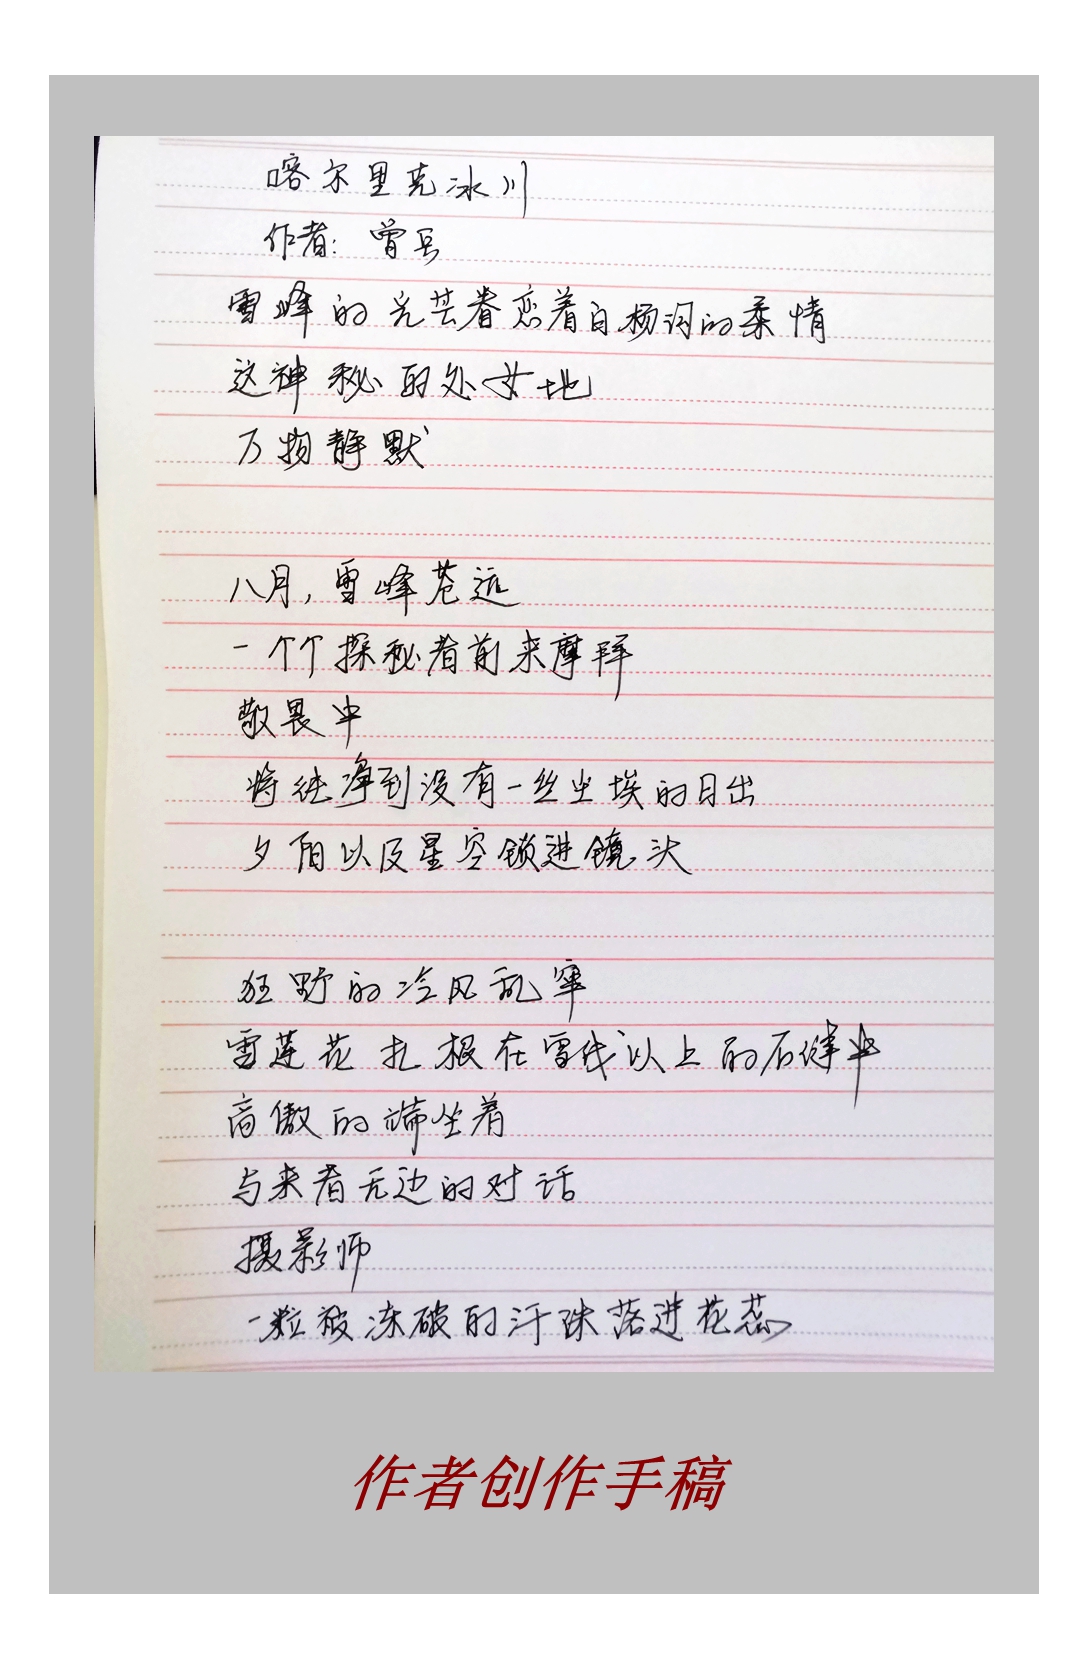 喀尔里克冰川
作者：曾兵
雪峰的光芒眷恋着白杨河的柔情
这神秘的处女地
万物静默
八月，雪峰苍远
一个个探秘者前来摩拜
敬畏中
将纯净到没有一丝尘埃的日出
夕阳以及星空锁进镜头
狂野的冷风乱窜
雪莲花扎根在雪线以上的石缝中
高傲的端坐着
与来者无边的对话
摄影师
一粒被冻破的汗珠落进花蕊
作者创作手稿